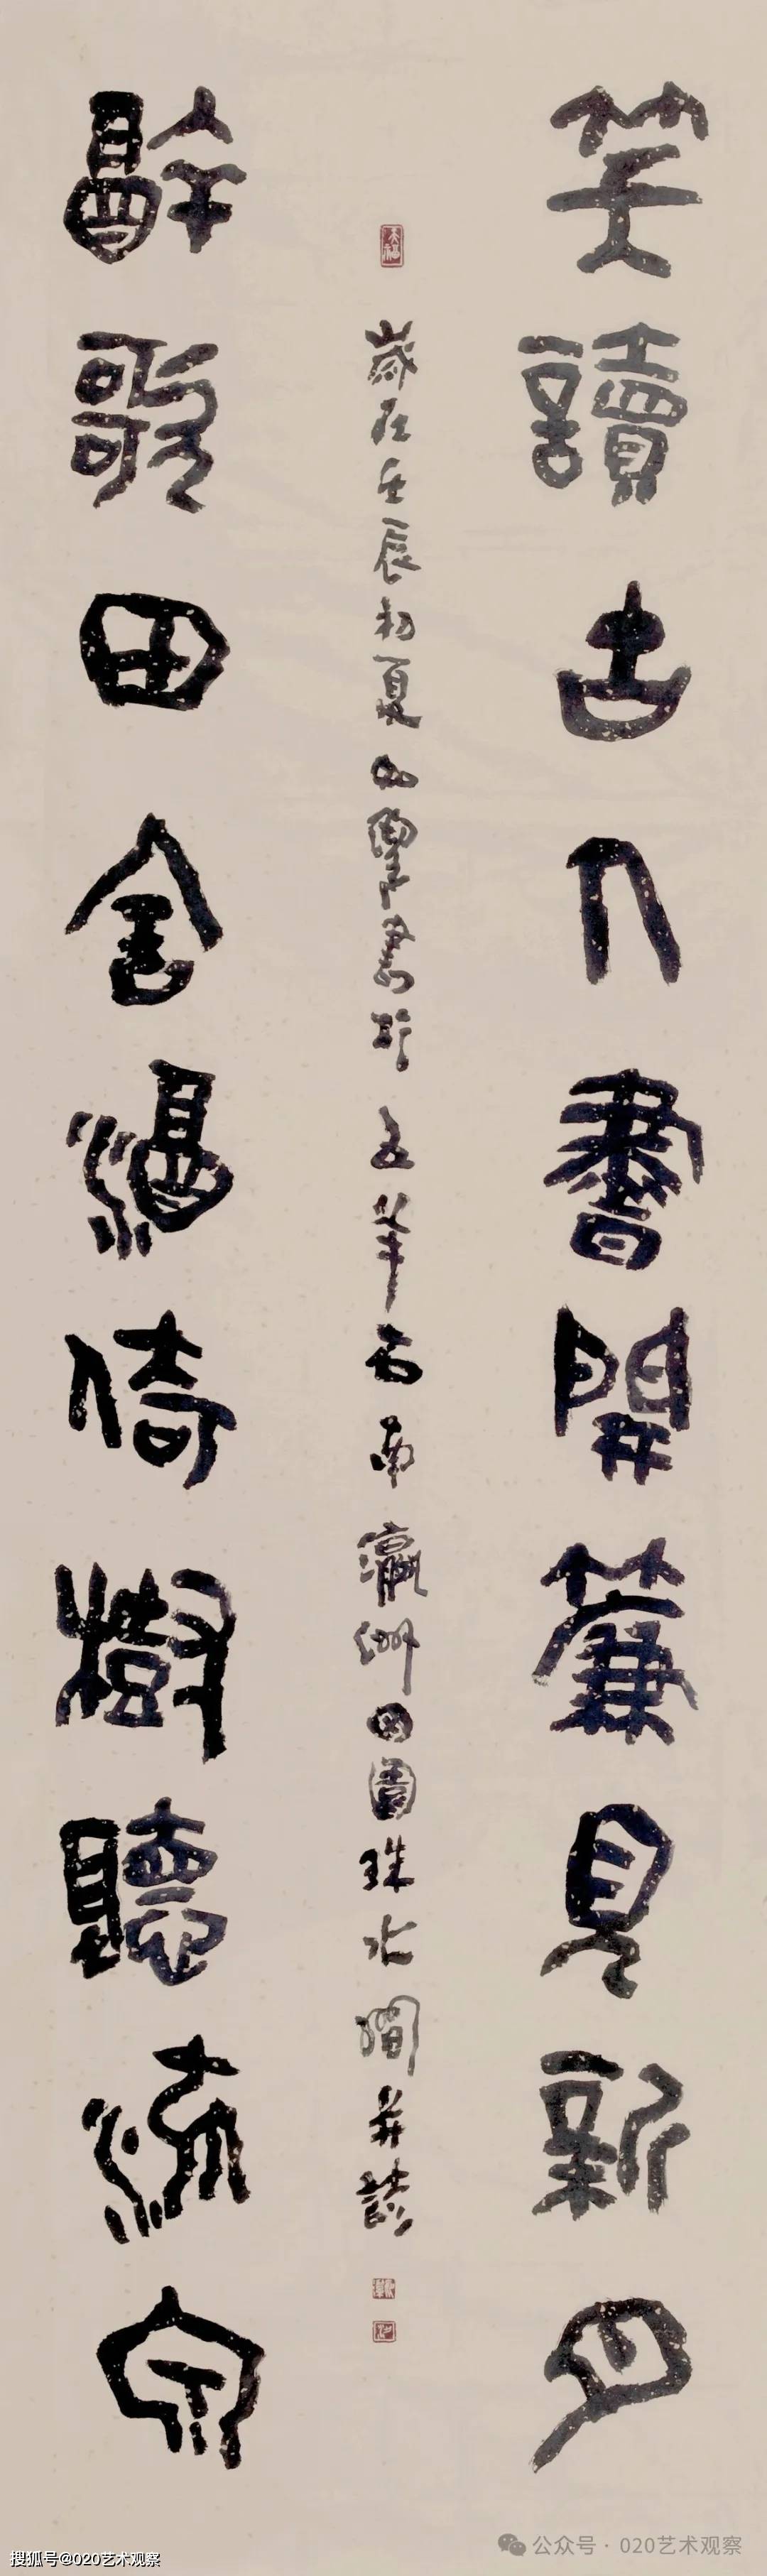 笑讀古人書開簾見新月
醉歌田舍酒倚樹聽流泉
歲在壬辰初夏
書於五羊石南瀛洲田園珠水間并識
搜狐号@020艺术观察
公众号·020艺术观察